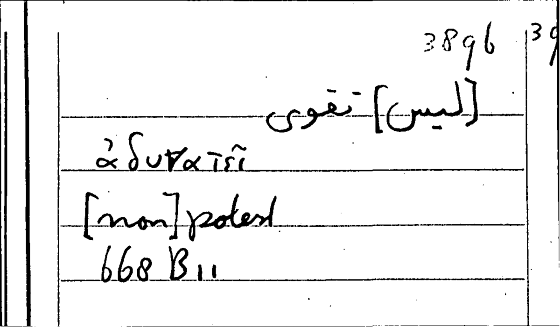 3896
[ليس] تقوى
ἀδυνατεῖ
[non] potest
668 B 11